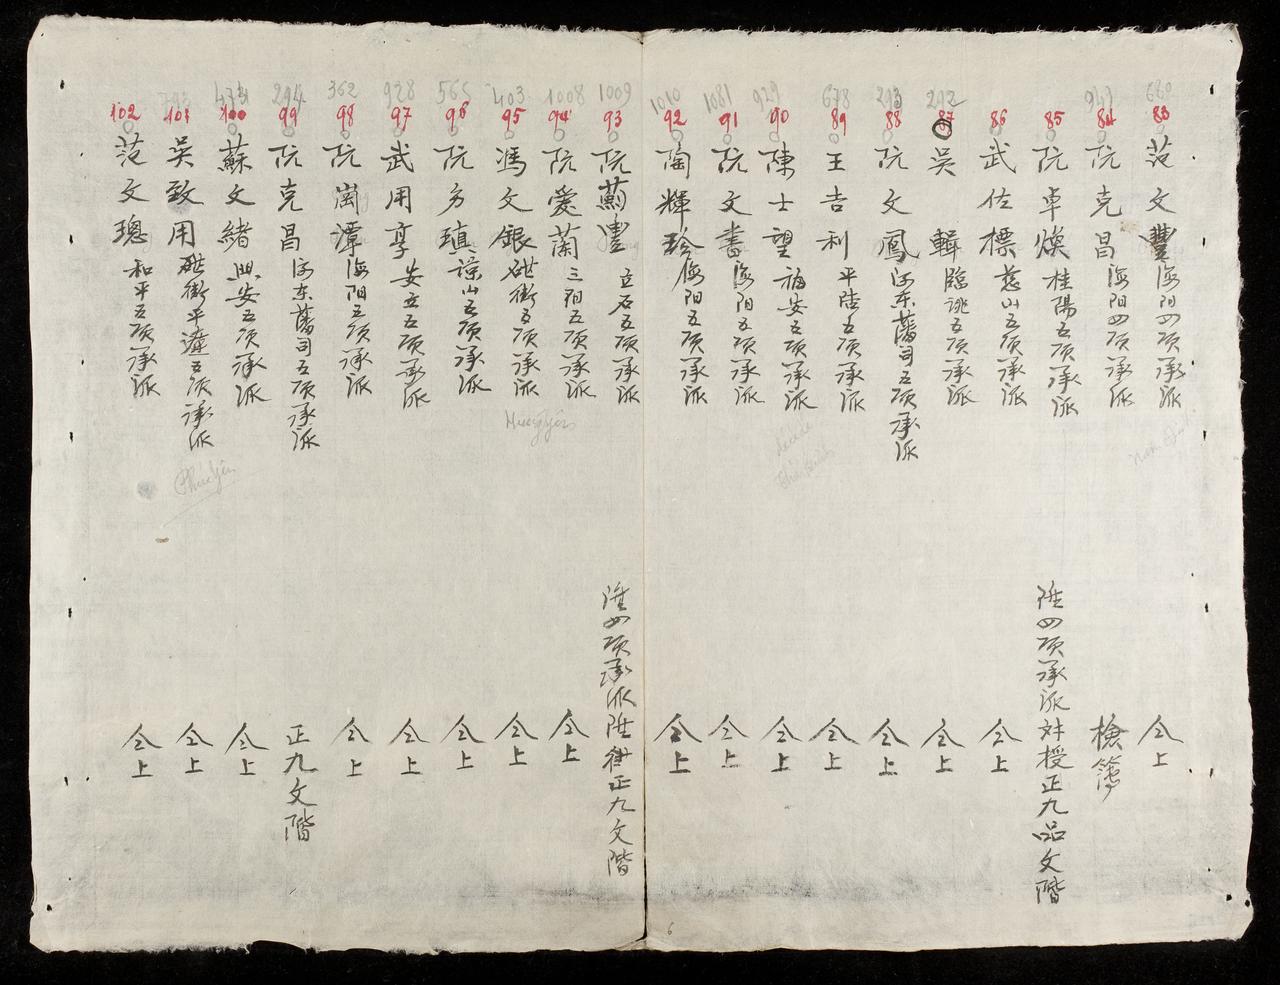 680
83
范文豐海陽四項承派
仝上
941
84
阮克昌海陽四項承派
檢簿
85
阮卓煥桂陽五項承派
陞四項承派对授正九品文階
86
武佐標慈山五項承派
仝上
292
87
吳輯臨洮五項承派
仝上
293
88
阮文鳳河东藩司五項承派
仝上
678
89
王吉利平陸五項承派
仝上
929
90
陳士望福安五項承派
仝上
1081
91
阮文書海阳五項承派
仝上
1010
92
陶輝珍海阳五項承派
仝上
1009
93
阮薊豊立石五項承派
陞四項承派陞銜正九文階
1008
94
阮愛蘭三阳五項承派
仝上
403
95
馮文銀硭街五項承派
仝上
565
96
阮方瑱諒山五項承派
仝上
928
97
武用享安立五項承派
仝上
362
98
阮崗潭海阳五項承派
仝上
294
99
阮克昌河东藩司五項承派
正九文階
100
蘇文緒興安五項承派
仝上
101
吳致用硭街平遼五項承派
仝上
102
范文璁和平五項承派
仝上
Phúc Yên
6